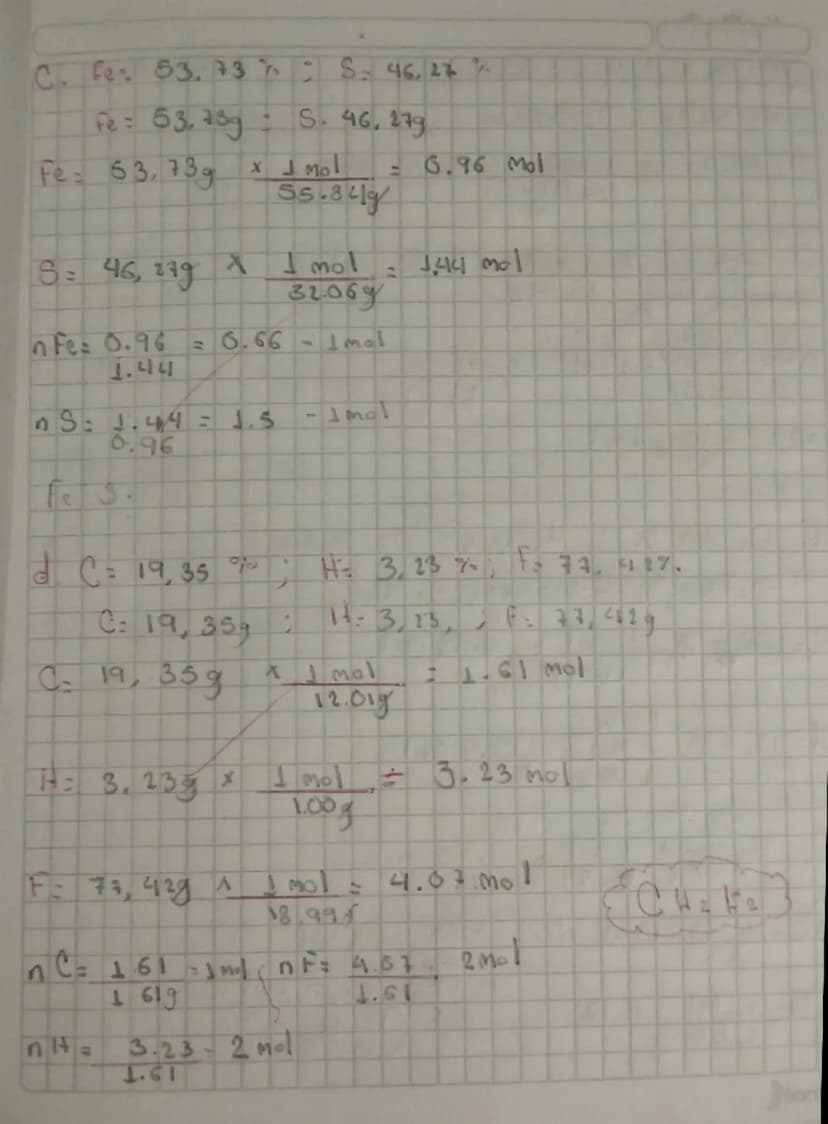 C. Fe= 53.73 % ; S= 46,27 %
Fe= 53,73g ; S. 46,27g
Fe= 53,73g x 1 mol / 55.84g = 0.96 mol
S= 46,27g x 1 mol / 32.06g = 1.44 mol
nFe= 0.96 / 1.44 = 0.66 - 1mol
nS= 1.44 / 0.96 = 1.5 - 1mol
Fe S.
d C= 19,35 % ; H= 3,23 %; F= 77,42%.
C= 19,35g ; H= 3,23, ; F= 77,42g
C= 19,35g x 1 mol / 12.01g = 1.61 mol
H= 3.23g x 1 mol / 1.00g = 3.23 mol
F= 77,42g x 1 mol / 18.99g = 4.07 mol
CH2F2
nC= 1.61 / 1 61g = 1mol ; nF= 4.07 / 1.61 2mol
nH= 3.23 / 1.61 - 2 mol